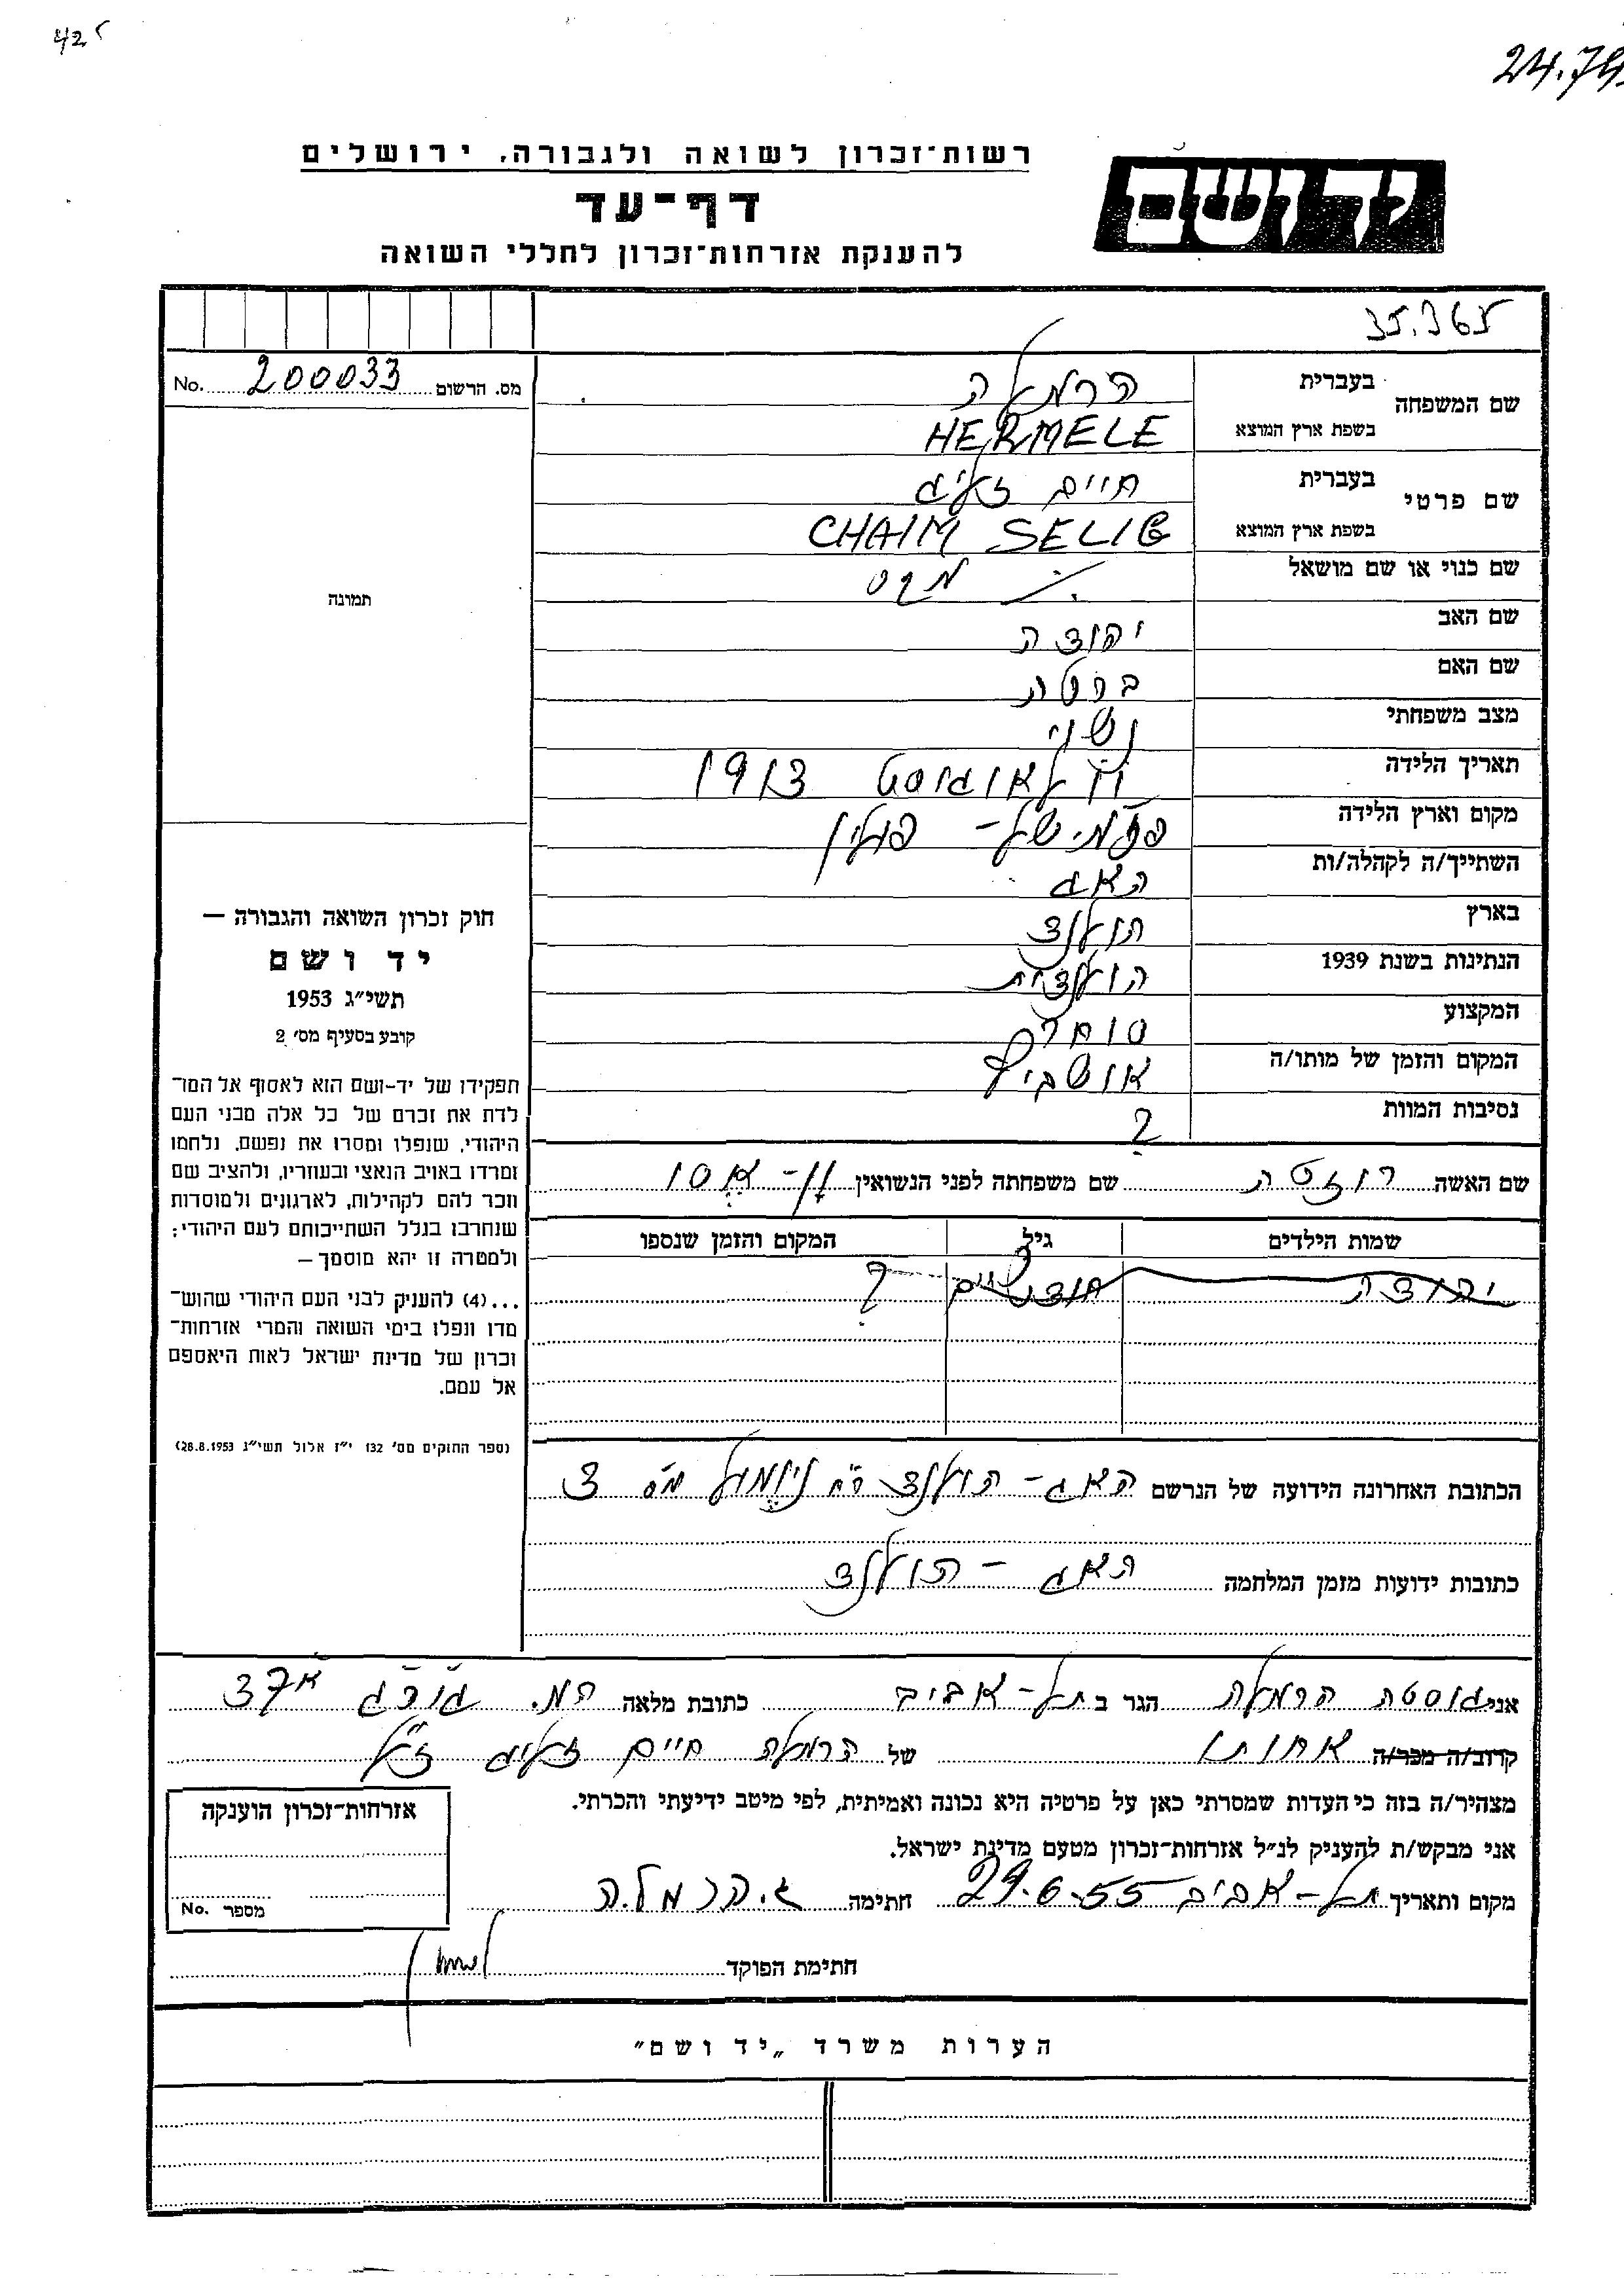 425
24.74
רשות־זכרון לשואה ולגבורה, ירושלים
יד ושם
דף־עד
להענקת אזרחות־זכרון לחללי השואה
35.365
מס. הרשום 200033 No.
תמונה
שם המשפחה בעברית הרמאלה
בשפת ארץ המוצא HERMELE
שם פרטי בעברית חיים זאליג
בשפת ארץ המוצא CHAIM SELIG
שם כנוי או שם מושאל מקס
שם האב יהודה
שם האם ברטה
מצב משפחתי נשוי
תאריך הלידה לאוגוסט 1913
מקום וארץ הלידה פולין
השתייך/ה לקהלה/ות האג
בארץ הולנד
הנתינות בשנת 1939 הולנדית
המקצוע סוחר
המקום והזמן של מותו/ה אושביץ
נסיבות המוות ?
חוק זכרון השואה והגבורה —
יד ושם
תשי״ג 1953
קובע בסעיף מס׳ 2
תפקידו של יד-ושם הוא לאסוף אל המו־
לדת את זכרם של כל אלה מבני העם
היהודי, שנפלו ומסרו את נפשם, נלחמו
ומרדו באויב הנאצי ובעוזריו, ולהציב שם
וזכר להם לקהילות, לארגונים ולמוסדות
שנחרבו בגלל השתייכותם לעם היהודי;
ולמטרה זו יהא מוסמך —
...(4) להעניק לבני העם היהודי שהוש־
מדו ונפלו בימי השואה והמרי אזרחות־
זכרון של מדינת ישראל לאות היאספם
אל עמם.
(ספר החוקים מס׳ 132 י״ז אלול תשי״ג 28.8.1953)
שם האשה רוזטה שם משפחתה לפני הנשואין
שמות הילדים גיל המקום והזמן שנספו
יהודה חודשיים ?
הכתובת האחרונה הידועה של הנרשם האג – הולנד רח מס 3
כתובות ידועות מזמן המלחמה האג – הולנד
אני גוסטה הרמאלה הגר ב תל–אביב כתובת מלאה
קרוב/ה מכר/ה אחותו של הרמאלה חיים זאליג ז״ל
מצהיר/ה בזה כי העדות שמסרתי כאן על פרטיה היא נכונה ואמיתית, לפי מיטב ידיעתי והכרתי.
אני מבקש/ת להעניק לנ״ל אזרחות־זכרון מטעם מדינת ישראל.
מקום ותאריך תל–אביב 29.6.55 חתימה ג. הרמלה
אזרחות־זכרון הוענקה
מספר No.
חתימת הפוקד
הערות משרד „יד ושם״